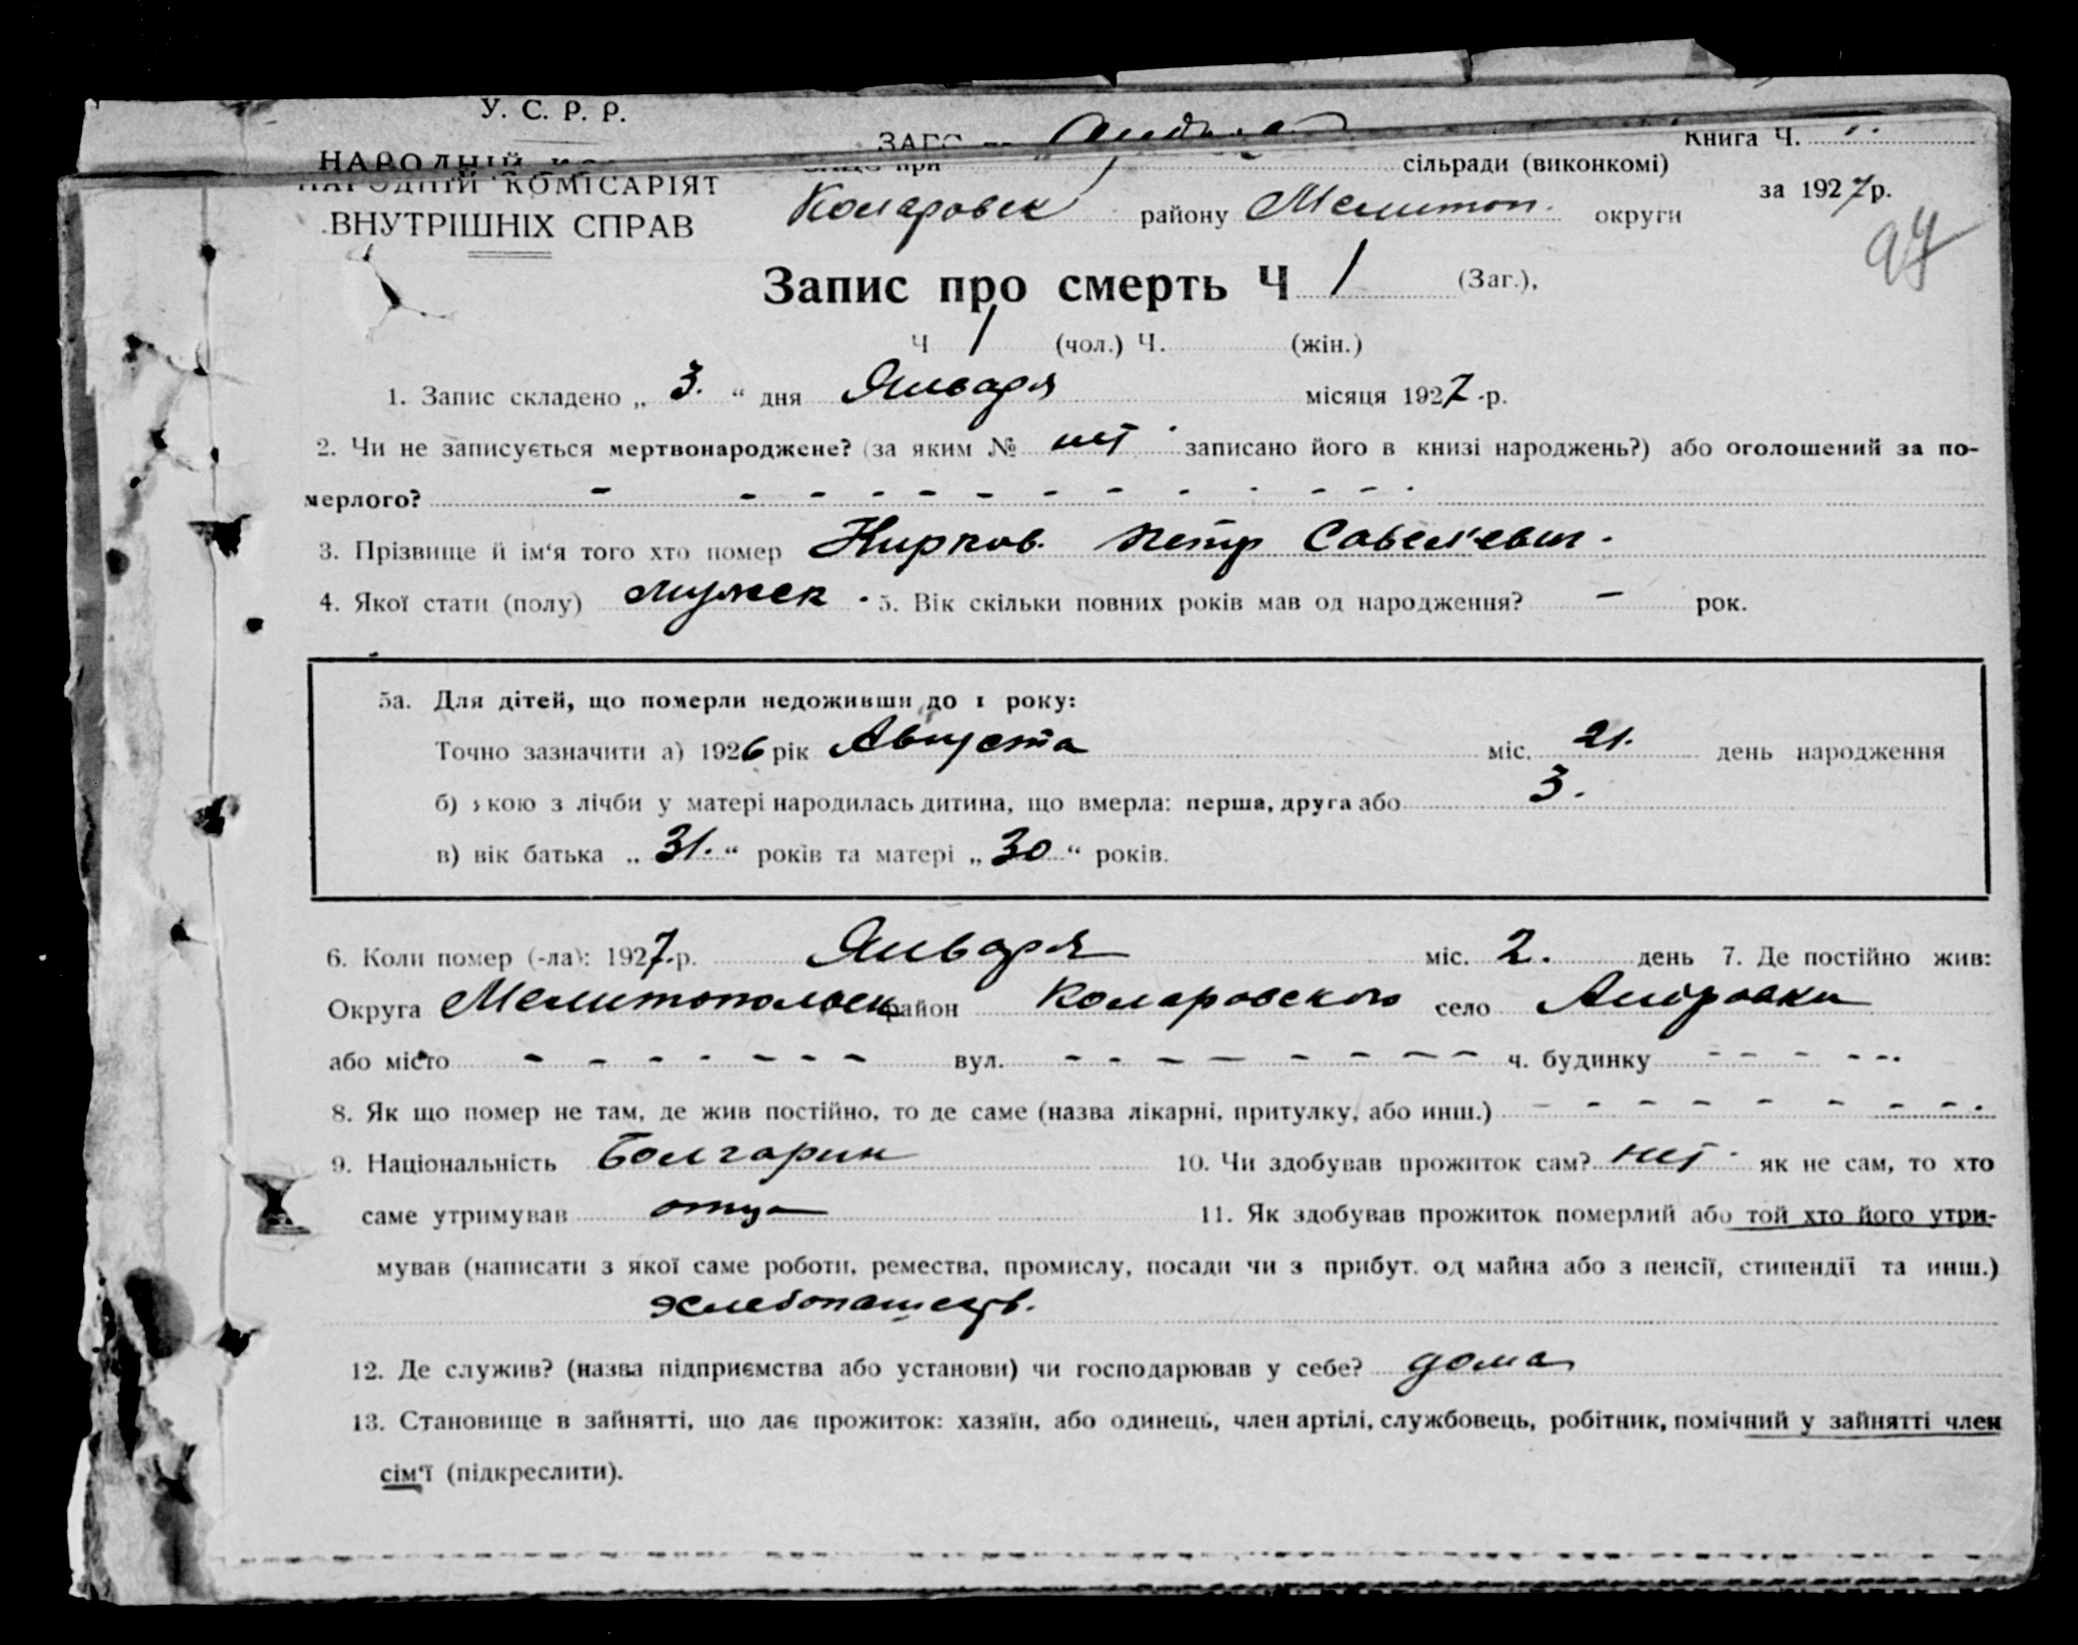 У. С. Р. Р.
НАРОДНІЙ КОМІСАРІЯТ
ВНУТРІШНІХ СПРАВ
ЗАГС
при сільради (виконкомі)
Книга Ч.
за 1927 р.
Коларовск району Мелитоп. округи
97
Запис про смерть Ч 1 (Заг.),
Ч 1 (чол.) Ч. (жін.)
1. Запис складено „ 3. “ дня Января місяця 1927 р.
2. Чи не записується мертвонароджене? (за яким № нет записано його в книзі народжень?) або оголошений за по-
мерлого? - - - - - - - - - - - - -
3. Прізвище й ім‘я того хто помер Петр Савельевич.
4. Якої стати (полу) мужск. 5. Вік скільки повних років мав од народження? - рок.
5а. Для дітей, що померли недоживши до 1 року:
Точно зазначити а) 1926 рік Августа міс. 21. день народження
б) якою з лічби у матері народилась дитина, що вмерла: перша, друга або 3.
в) вік батька „ 31. “ років та матері „ 30 “ років.
6. Коли помер (-ла): 1927 р. Января міс. 2. день 7. Де постійно жив:
Округа Мелитопольск район Коларовского село Андровки
або місто - - - - - - - вул. - - - - - - - - - ч. будинку - - - - -.
8. Як що помер не там, де жив постійно, то де саме (назва лікарні, притулку, або инш.) - - - - - - - - -.
9. Національність Болгарин 10. Чи здобував прожиток сам? нет як не сам, то хто
саме утримував отца 11. Як здобував прожиток померлий або той хто його утри-
мував (написати з якої саме роботи, ремества, промислу, посади чи з прибут. од майна або з пенсії, стипендії та инш.)
хлебопашеств.
12. Де служив? (назва підприємства або установи) чи господарював у себе? дома
13. Становище в зайнятті, що дає прожиток: хазяїн, або одинець, член артілі, службовець, робітник, помічний у зайнятті член
сім‘ї (підкреслити).